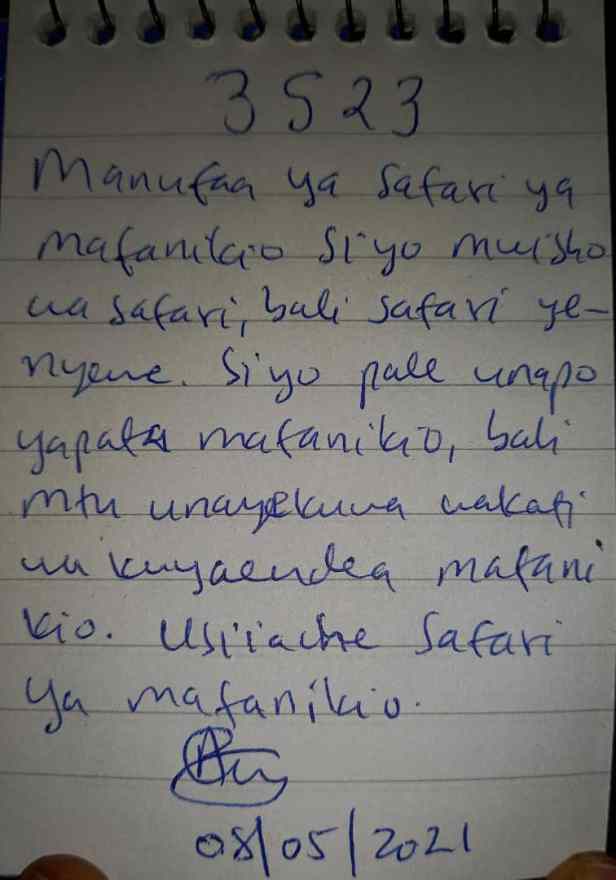 3523
Manufaa ya safari ya
mafanikio siyo mwisho
wa safari, bali safari ye-
nyewe. Siyo pale unapo
yapata mafanikio, bali
mtu unayekuwa wakati
wa kuyaendea mafani
kio. Usiiache safari
ya mafanikio.
08/05/2021